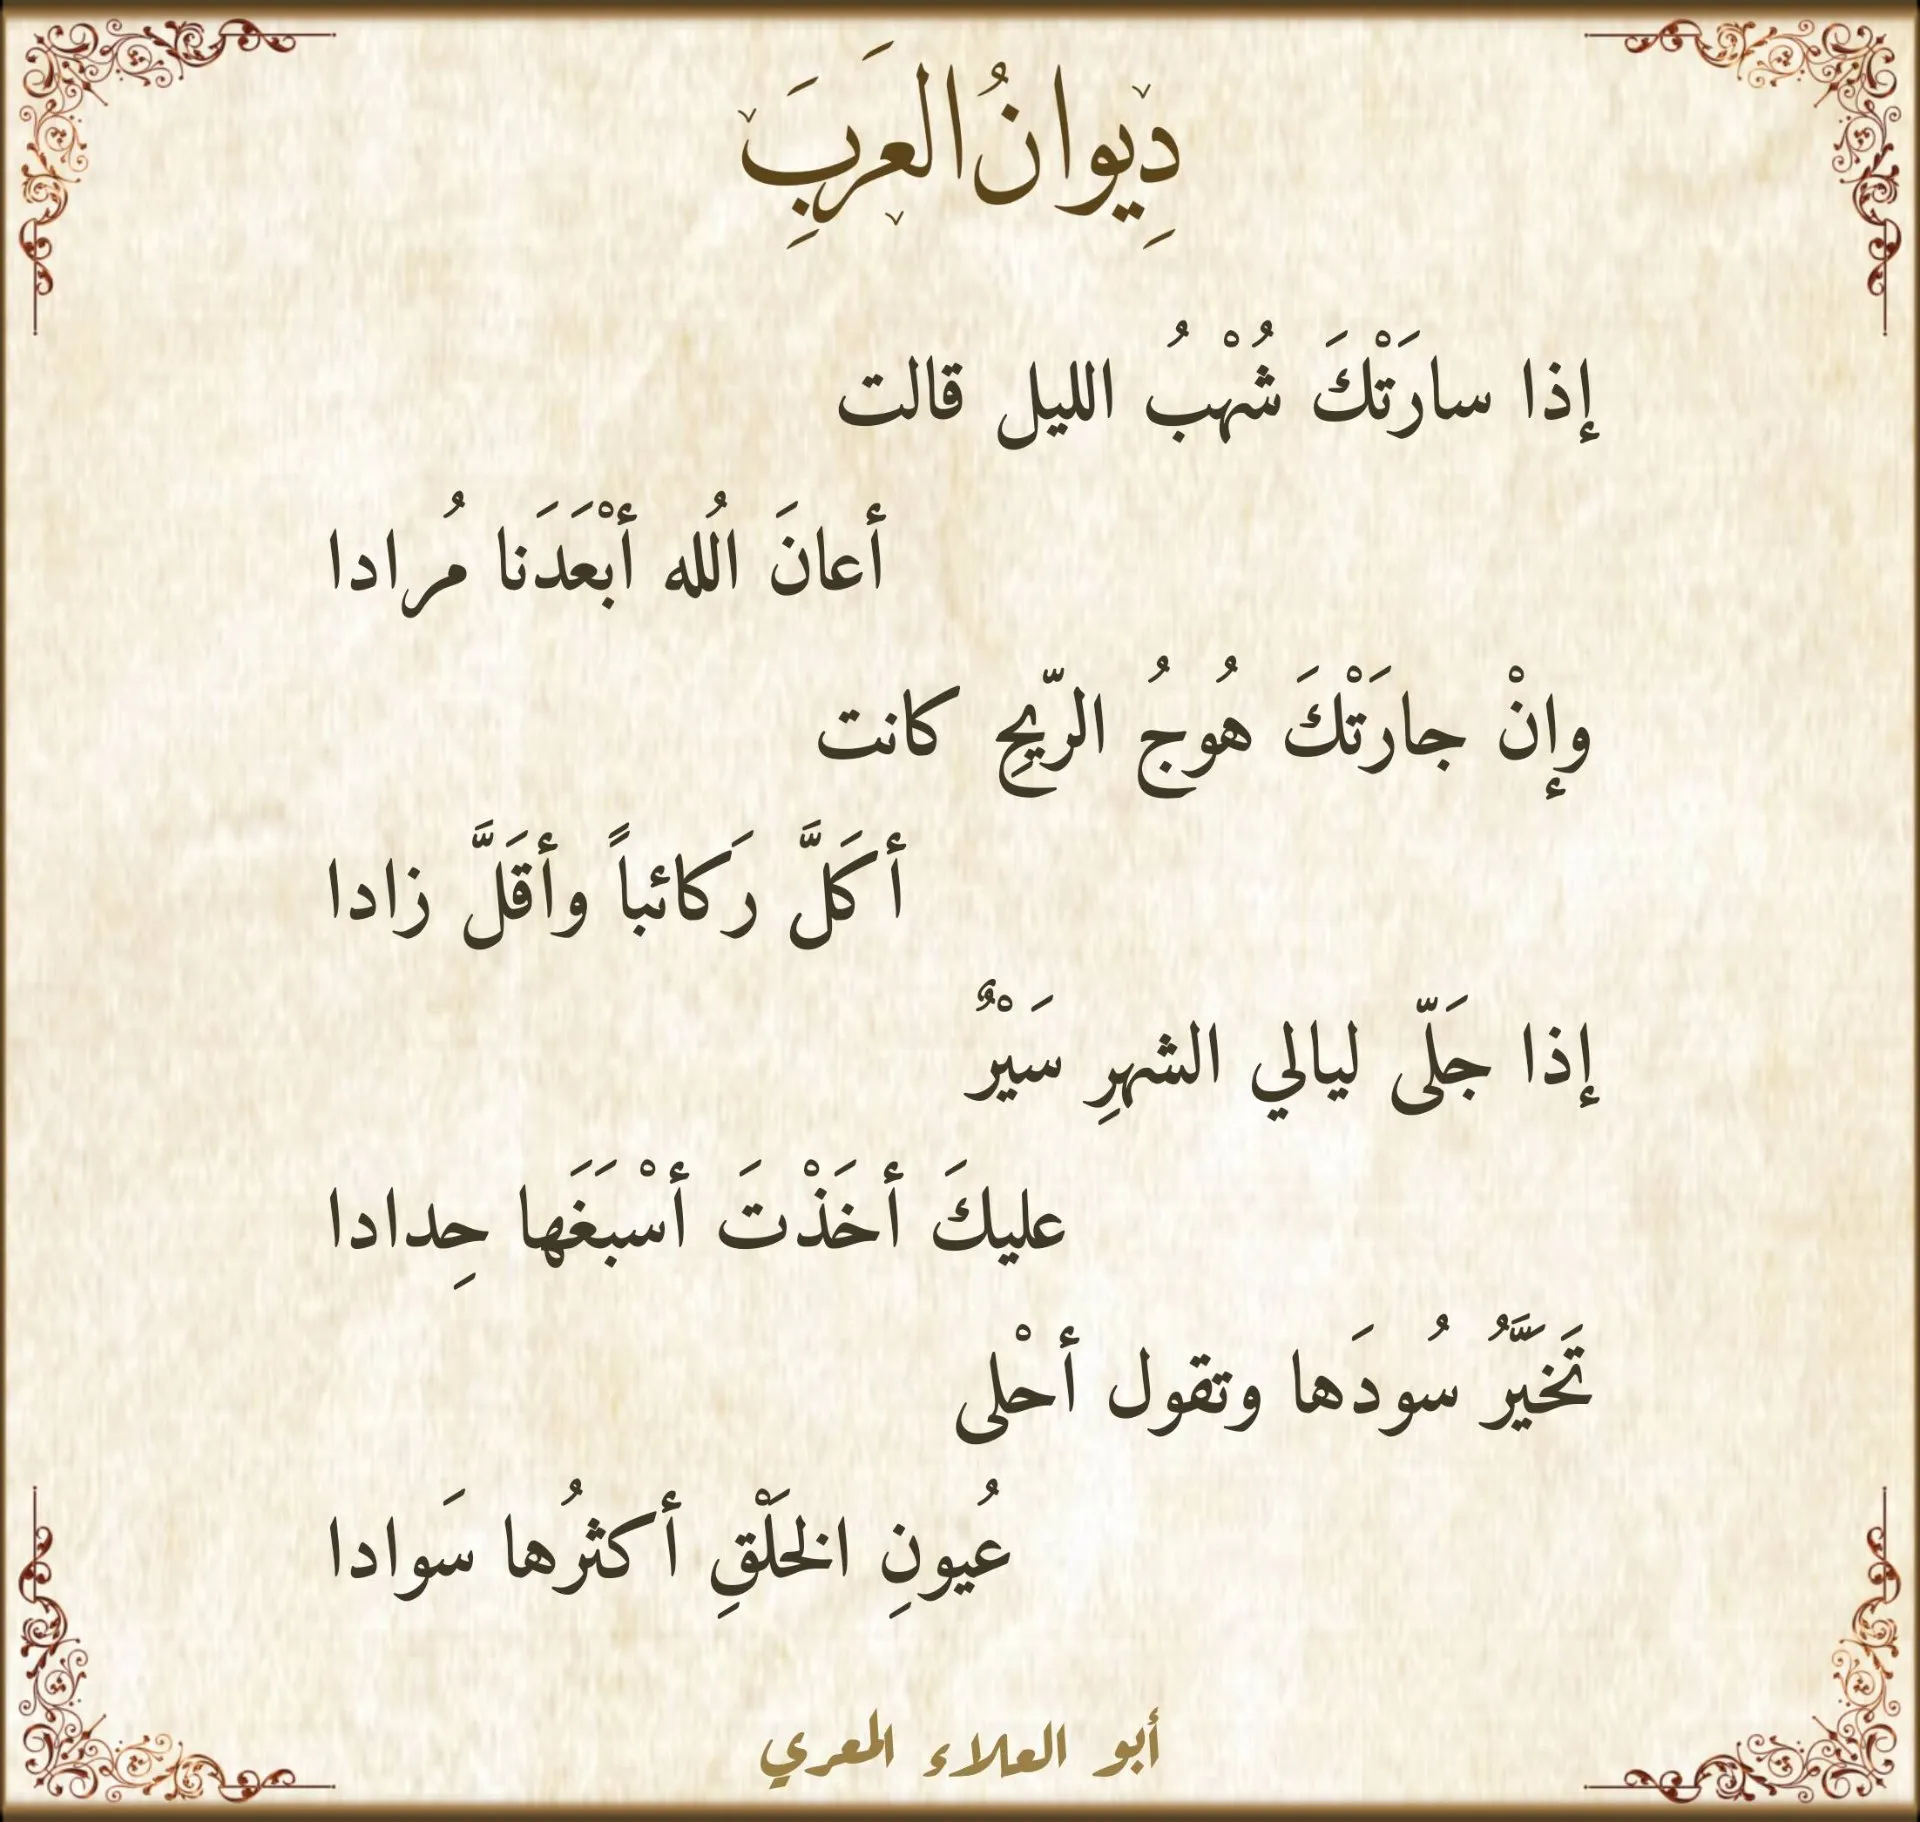 دِيوانُ العَرَبَِ
إذا سارَتْكَ شُهْبُ الليل قالت
أعانَ اللُه أبْعَدَنا مُرادا
وإنْ جارَتْكَ هُوجُ الرّيحِ كانت
أكَلَّ رَكائباً وأقَلَّ زادا
إذا جَلّى ليالي الشهرِ سَيْرٌ
عليكَ أخَذْتَ أسْبَغَها حِدادا
تَخَيَّرُ سُودَها وتقول أحْلى
عُيونِ الخَلْقِ أكثرُها سَوادا
أبو العلاء المعري